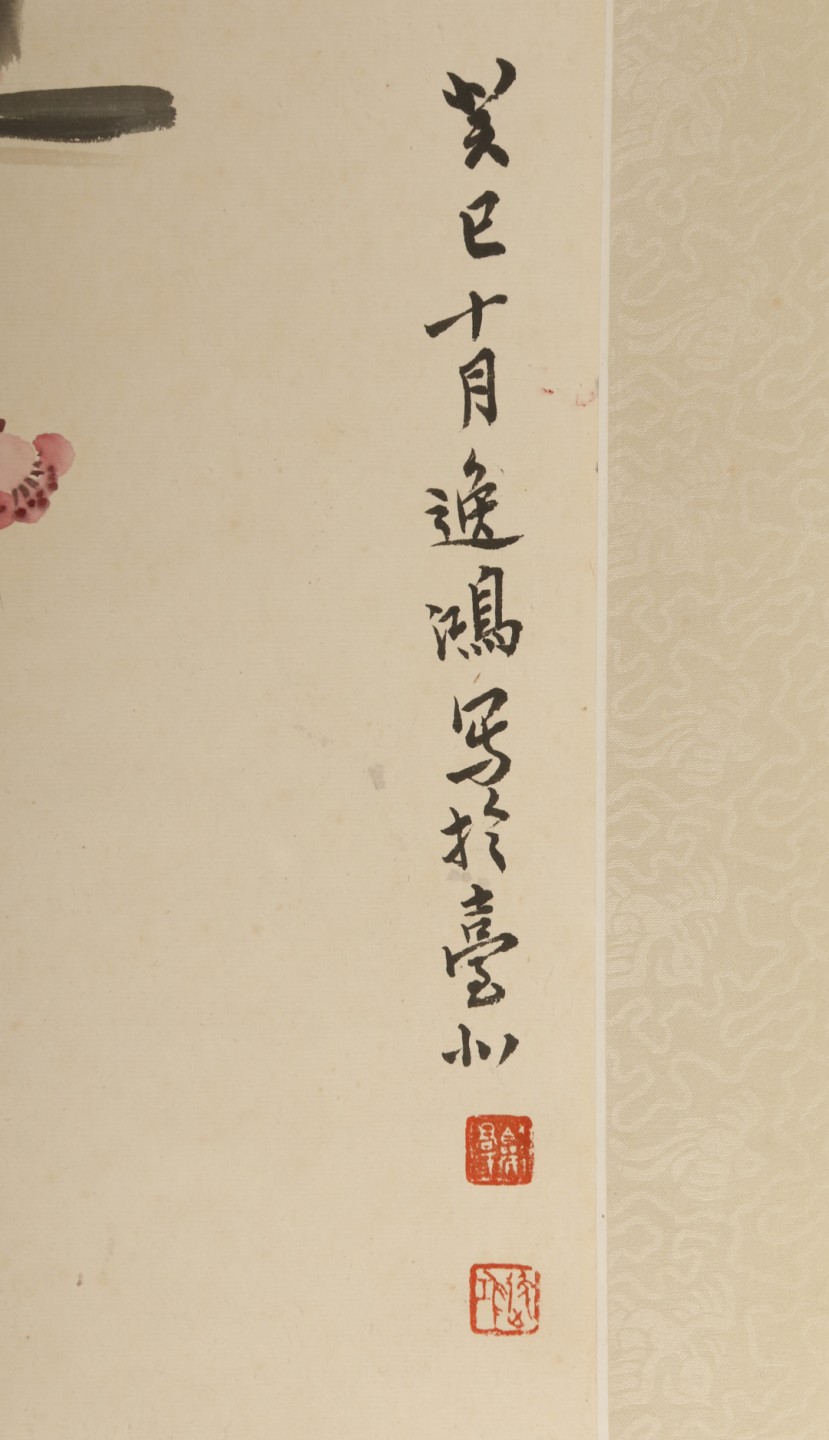 癸巳十月逸鴻写於臺北